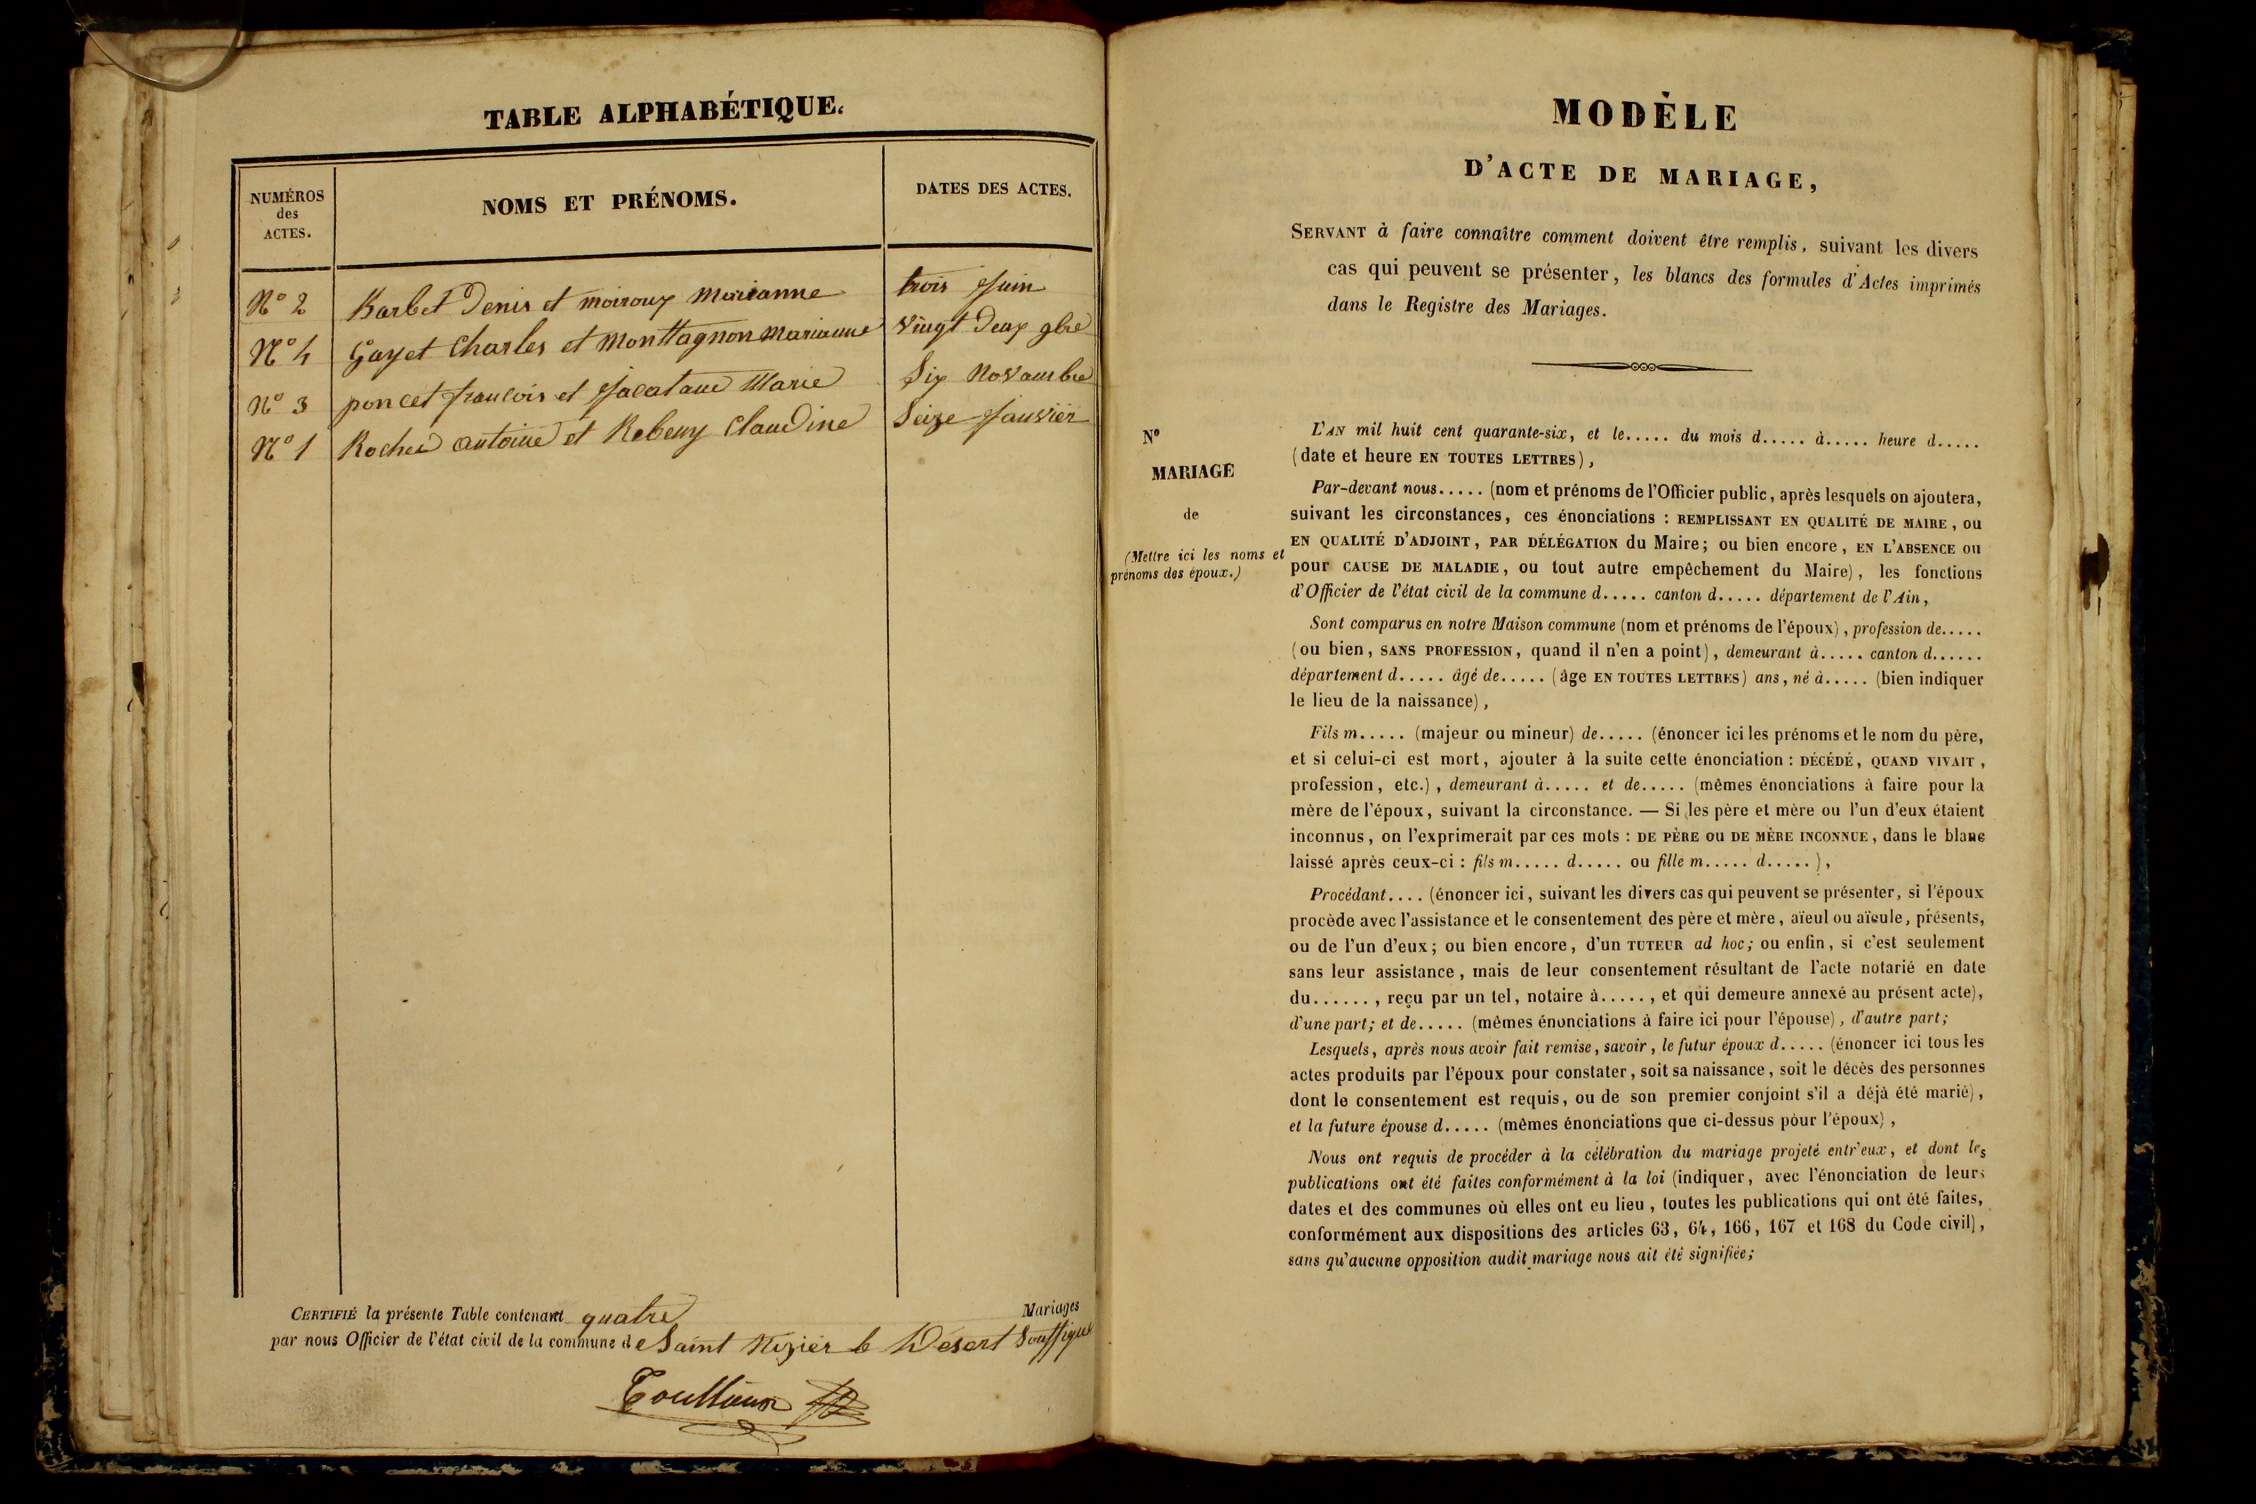 TABLE ALPHABÉTIQUE.
NUMÉROS
des
ACTES.
NOMS ET PRÉNOMS.
DATES DES ACTES.
No 2 Barbet Denis et moiroux Marianne trois Juin
No 4 Gayet Charles et Monttagnon Marianne vingt Deux 9bre
No 3 poncet francois et Marie Six Novambre
No 1 Roche antoine et Rebeuy Claudine Seize Janvier
CERTIFIÉ la présente Table contenant quatre Mariages
par nous Officier de l'état civil de la commune de Saint Nizier le Désert
MODÈLE
D'ACTE DE MARIAGE,
SERVANT à faire connaître comment doivent être remplis, suivant les divers
cas qui peuvent se présenter, les blancs des formules d'Actes imprimés
dans le Registre des Mariages.
No
MARIAGE
de
(Mettre ici les noms et
prénoms des époux.)
L'AN mil huit cent quarante-six, et le..... du mois d..... à..... heure d.....
(date et heure EN TOUTES LETTRES),
Par-devant nous..... (nom et prénoms de l'Officier public, après lesquels on ajoutera,
suivant les circonstances, ces énonciations : REMPLISSANT EN QUALITÉ DE MAIRE, ou
EN QUALITÉ D'ADJOINT, PAR DÉLÉGATION du Maire; ou bien encore, EN L'ABSENCE ou
pour CAUSE DE MALADIE, ou tout autre empêchement du Maire), les fonctions
d'Officier de l'état civil de la commune d..... canton d..... département de l'Ain,
Sont comparus en notre Maison commune (nom et prénoms de l'époux), profession de.....
(ou bien, SANS PROFESSION, quand il n'en a point), demeurant à..... canton d......
département d..... âgé de..... (âge EN TOUTES LETTRES) ans, né à..... (bien indiquer
le lieu de la naissance),
Fils m..... (majeur ou mineur) de..... (énoncer ici les prénoms et le nom du père,
et si celui-ci est mort, ajouter à la suite cette énonciation : DÉCÉDÉ, QUAND VIVAIT,
profession, etc.), demeurant à..... et de..... (mêmes énonciations à faire pour la
mère de l'époux, suivant la circonstance. — Si les père et mère ou l'un d'eux étaient
inconnus, on l'exprimerait par ces mots : DE PÈRE OU DE MÈRE INCONNUE, dans le blanc
laissé après ceux-ci : fils m..... d..... ou fille m..... d.....),
Procédant.... (énoncer ici, suivant les divers cas qui peuvent se présenter, si l'époux
procède avec l'assistance et le consentement des père et mère, aïeul ou aïeule, présents,
ou de l'un d'eux; ou bien encore, d'un TUTEUR ad hoc; ou enfin, si c'est seulement
sans leur assistance, mais de leur consentement résultant de l'acte notarié en date
du......, reçu par un tel, notaire à....., et qui demeure annexé au présent acte),
d'une part; et de..... (mêmes énonciations à faire ici pour l'épouse), d'autre part;
Lesquels, après nous avoir fait remise, savoir, le futur époux d..... (énoncer ici tous les
actes produits par l'époux pour constater, soit sa naissance, soit le décès des personnes
dont le consentement est requis, ou de son premier conjoint s'il a déjà été marié),
et la future épouse d..... (mêmes énonciations que ci-dessus pour l'époux),
Nous ont requis de procéder à la célébration du mariage projeté entr'eux, et dont les
publications ont été faites conformément à la loi (indiquer, avec l'énonciation de leurs
dates et des communes où elles ont eu lieu, toutes les publications qui ont été faites,
conformément aux dispositions des articles 63, 64, 166, 167 et 168 du Code civil),
sans qu'aucune opposition audit mariage nous ait été signifiée;